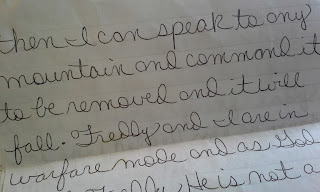 then I can speak to any
mountain and command it
to be removed and it will
fall. Freddy and I are in
warfare mode and as God
Freddy, He is not a